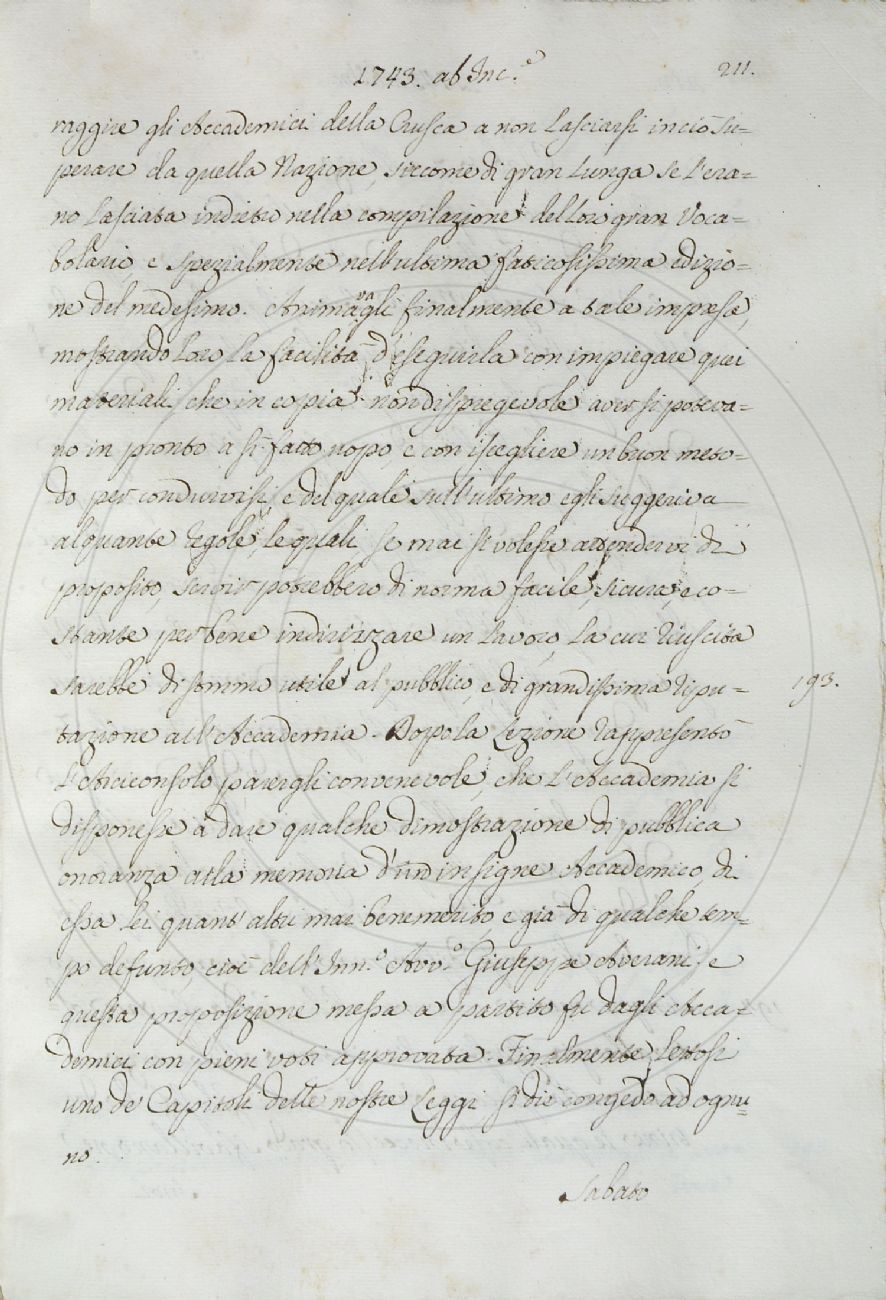 1743. ab Inc.º
211.
raggire gli Accademici della Crusca a non lasciarsi in ciò su=
perare da quella Nazione, siccome di gran lunga se l'era=
no lasciata indietro nella compilazione del loro gran Voca=
bolario, e spezialmente nell'ultima faticosissima edizio=
ne del medesimo. Animavagli finalmente a tale impresa,
mostrando loro la facilità d'eseguirla con impiegare quei
materiali, che in copia non dispregevole aver si poteva=
no in pronto a sì fatto uopo, e con iscegliere un buon meto=
do per condurvisi, e del quale sull'ultimo egli suggeriva
alquante regole, le quali, se mai si volesse attendervi di
proposito, servir potrebbero di norma facile, sicura, e co=
stante per bene indirizzare un lavoro, la cui riuscita
sarebbe di sommo utile al pubblico, e di grandissima ripu=
193.
tazione all'Accademia. Dopo la Lezione rappresentò
l'Arciconsolo parergli convenevole, che l'Accademia si
disponesse a dare qualche dimostrazione di pubblica
onoranza alla memoria d'un insigne Accademico, di
essa lei quant'altri mai benemerito, e già di qualche tem=
po defunto, cioè dell'Inn.º Avv.º Giuseppe Averani, e
questa proposizione messa a partito fu dagli Acca=
demici con pieni voti approvata. Finalmente lettosi
uno de' Capitoli delle nostre Leggi si diè congedo ad ognu=
no.
Sabato